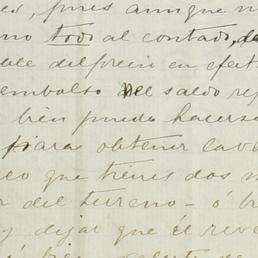 pues aunque
no todo al contado, de
del precio en efect
embolso del saldo re
bien puede hacerse
para obtener la ve
eo que tienes dos m
r del terreno - ó b
y dejar que él reve